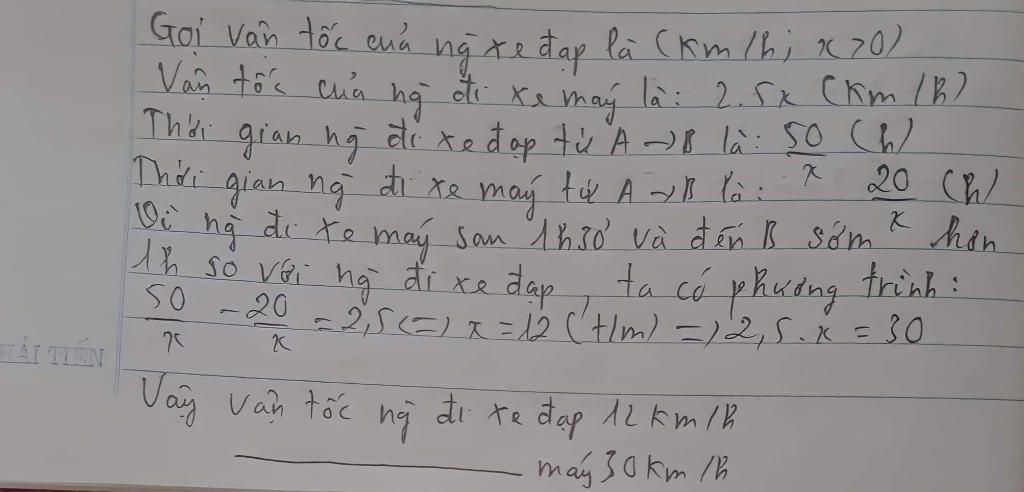 Gọi vận tốc của ng̃ xe đạp là (Km/h; x>0)
Vận tốc của ng̃ đi xe máy là: 2.5x (Km/h)
Thời gian ng̃ đi xe đạp từ A → B là: 50/x (h)
Thời gian ng̃ đi xe máy từ A → B là: 20/x (h)
Vì ng̃ đi xe máy sau 1h30' và đến B sớm hơn
1h so với ng̃ đi xe đạp, ta có phương trình:
50/x - 20/x = 2,5 <=> x = 12 (t/m) => 2,5.x = 30
HẢI TIẾN
Vậy vận tốc ng̃ đi xe đạp 12 Km/h
máy 30 Km/h